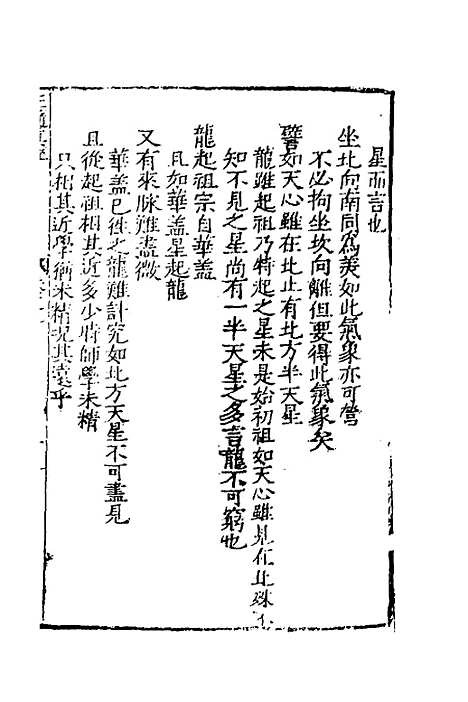 星而言也
坐北向南同爲美如此氣象亦可驚
不必拘坐坎向離但要得此氣象矣
譬如天心雖在北止有北方半天星
龍雖起祖乃特起之星未是始初祖如天心雖見在北殊不
知不見之星尚有一半天星之多言龍不可窮也
龍起祖宗自華盖
且如華盖星起龍
又有來脉難盡微
華盖巳徃之龍難計究如北方天星不可盡見
且後起祖相其近多少時師學未精
只相其近學術未精况其遠乎